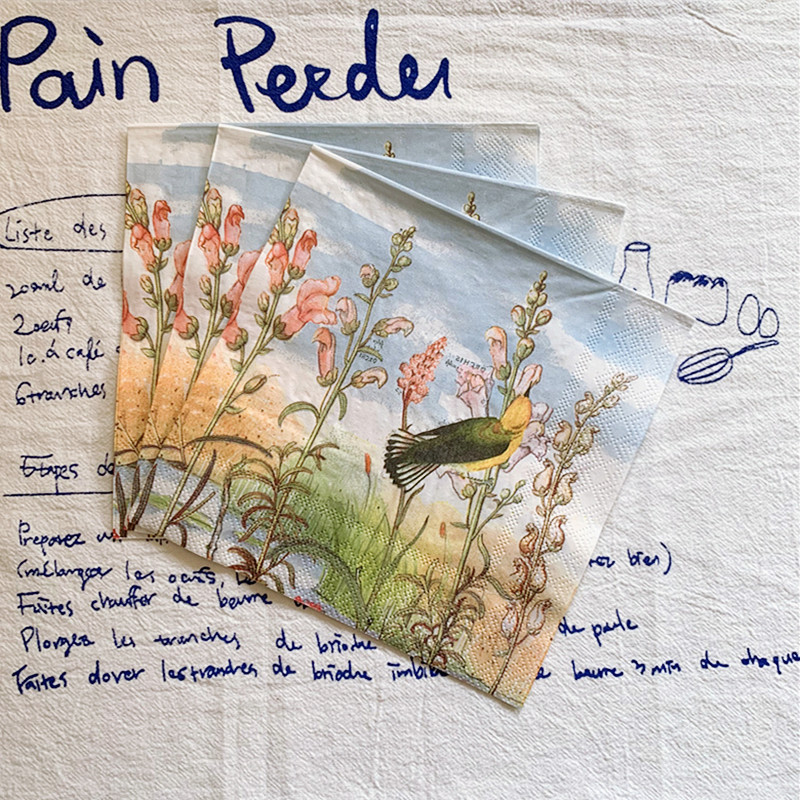 Pain Perdu
Liste des
200ml de
2 oeufs
1c.à café
6 tranches
Etapes de
Preparez
(mélanger les oeufs, le rez bien)
Faites chauffer de beurre
Plongez les tranches de brioche de paele
Faites dorer les tranches de brioche imbibe beurre 3 min du chaque